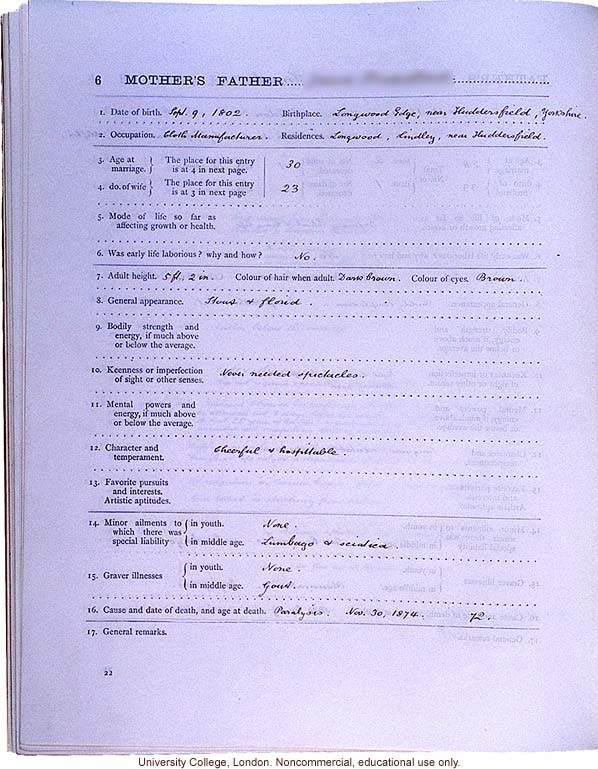 6 MOTHER'S FATHER
1. Date of birth. Sept. 9, 1802. Birthplace. Longwood Edge, near Huddersfield, Yorkshire.
2. Occupation. Cloth Manufacturer. Residences. Longwood, Lindley, near Huddersfield.
3. Age at marriage. } The place for this entry is at 4 in next page. 30
4. do. of wife } The place for this entry is at 3 in next page 23
5. Mode of life so far as
affecting growth or health.
6. Was early life laborious? why and how? No.
7. Adult height. 5 ft, 2 in. Colour of hair when adult. Dark brown. Colour of eyes. Brown.
8. General appearance. Stout & florid.
9. Bodily strength and
energy, if much above
or below the average.
10. Keenness or imperfection
of sight or other senses. Never needed spectacles.
11. Mental powers and
energy, if much above
or below the average.
12. Character and
temperament. Cheerful & hospitable.
13. Favorite pursuits
and interests.
Artistic aptitudes.
14. Minor ailments to which there was special liability { in youth. None.
in middle age. Lumbago & sciatica
15. Graver illnesses { in youth. None.
in middle age. Gout.
16. Cause and date of death, and age at death. Paralysis. Nov. 30, 1874. 72.
17. General remarks.
22
University College, London. Noncommercial, educational use only.